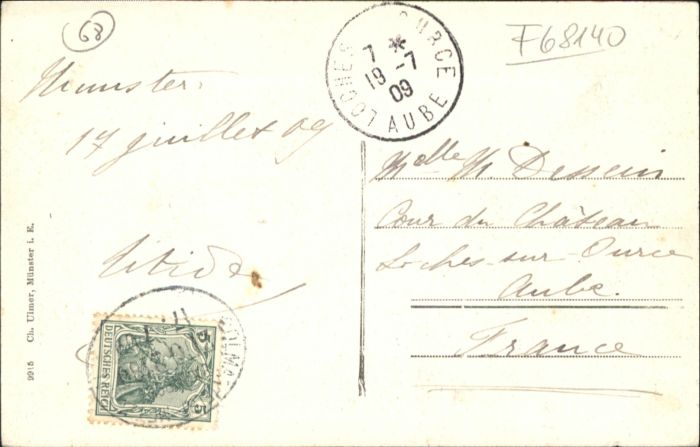 68
F68140
LOCHES S OURCE
7 *
19 -7
09
AUBE
Munster.
17 juillet 09
Melle M. Dessein
Cour du Château
Loches-sur-Ource
Aube.
France
9915 Ch. Ulmer, Münster i. E.
COLMAR
5 5
DEUTSCHES REICH